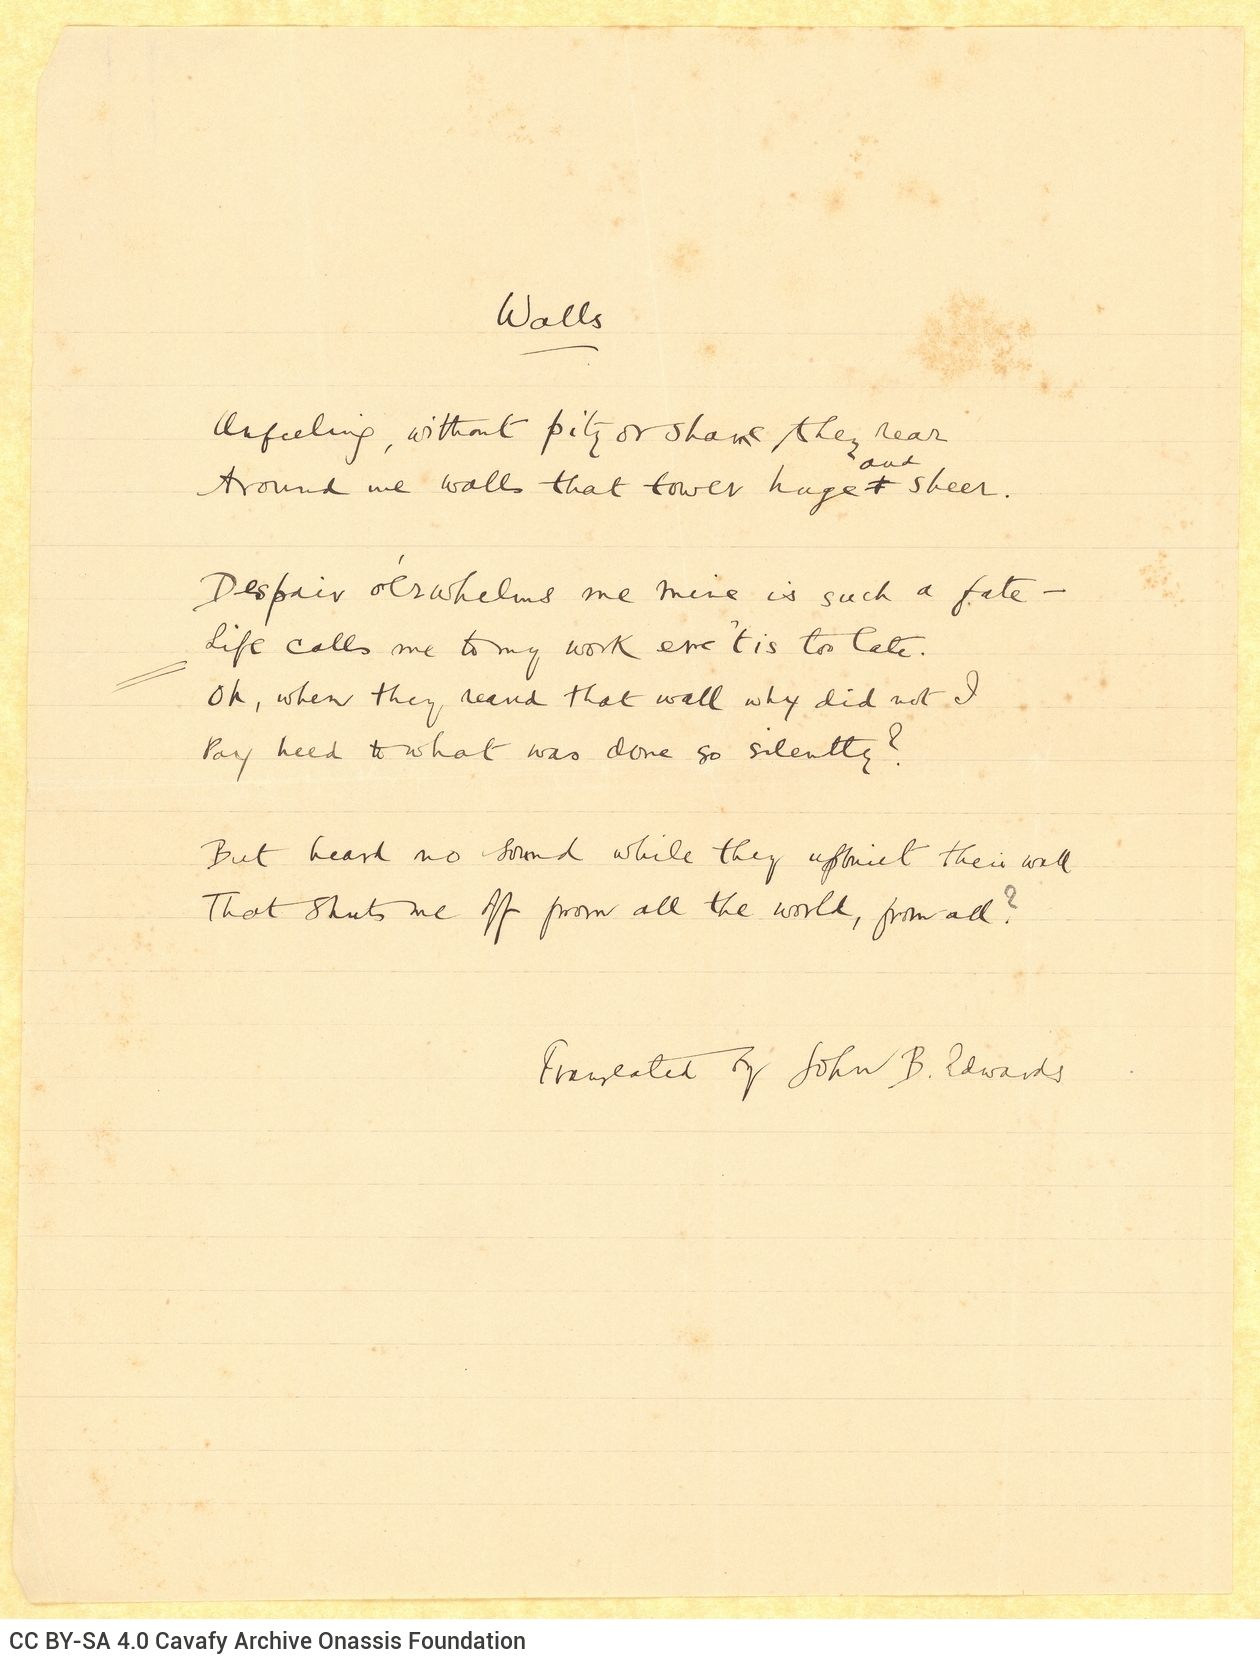 Walls
Unfeeling, without pity or shame they rear
Around me walls that tower huge and sheer.
Despair o'erwhelms me mine is such a fate —
Life calls me to my work ere 'tis too late.
Oh, when they reared that wall why did not I
Pay heed to what was done so silently?
But heard no sound while they upbuilt their wall
That shuts me off from all the world, from all?
Translated by John B. Edwards
CC BY-SA 4.0 Cavafy Archive Onassis Foundation